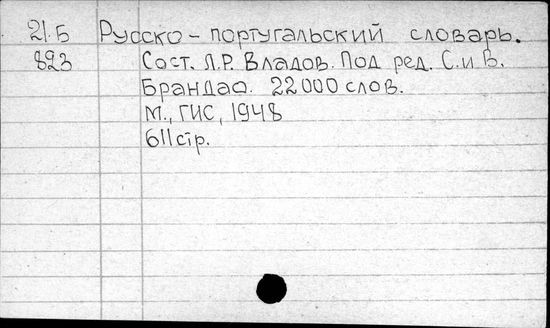 21.Б Русско-португальский словарь.
823 Сост. Л.Р. Владов. Под ред. С. и В.
Брандао. 22000 слов.
М., ГИС, 1948
611 стр.